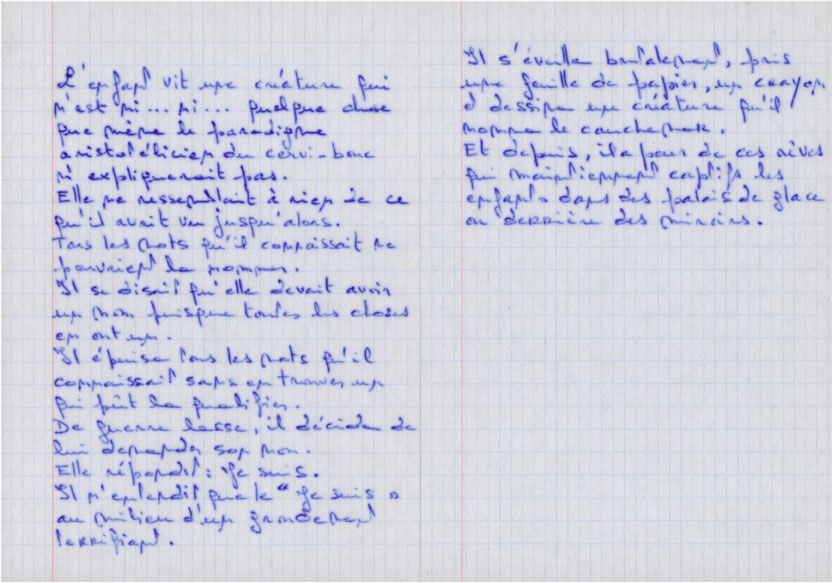 L'enfant vit une créature qui
n'est ni... ni... quelque chose
que même le paradigme
aristotélicien du cervi-bouc
n'expliquerait pas.
Elle ne ressemblait à rien de ce
qu'il avait vu jusqu'alors.
Tous les mots qu'il connaissait ne
pouvaient la nommer.
Il se disait qu'elle devait avoir
un nom puisque toutes les choses
en ont un.
Il épuisa tous les mots qu'il
connaissait sans en trouver un
qui pût la qualifier.
De guerre lasse, il décida de
lui demander son nom.
Elle répondit : Je suis.
Il n'entendit que le "Je suis »
au milieu d'un grondement
terrifiant.
Il s'éveilla brutalement, pris
une feuille de papier, un crayon
& dessina une créature qu'il
nomma le cauchemar.
Et depuis, il a peur de ces rêves
qui maintiennent captifs les
enfants dans des palais de glace
ou derrière des miroirs.